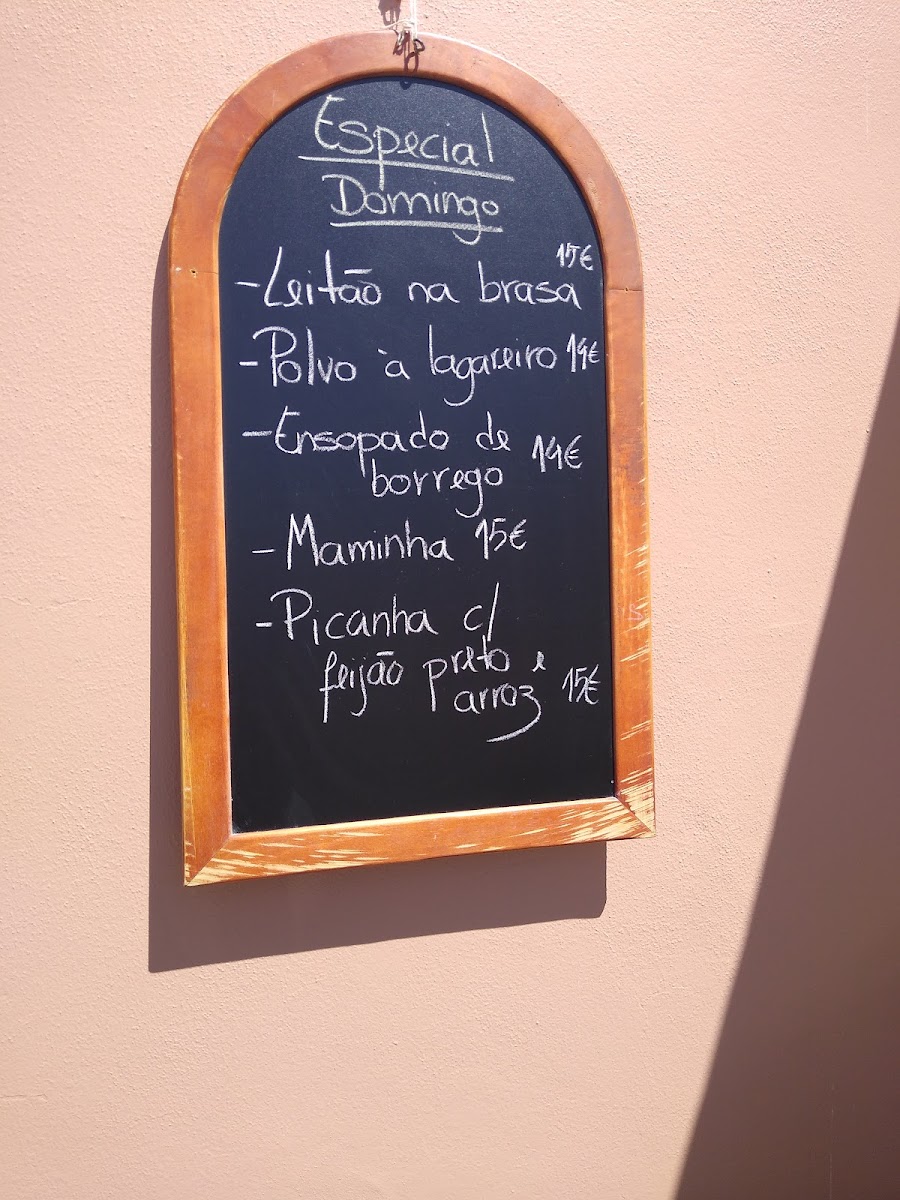 Especial
Domingo
15€
-Leitão na brasa
-Polvo à lagareiro 14€
-Ensopado de
borrego 14€
-Maminha 15€
-Picanha c/
feijão preto e
arroz 15€